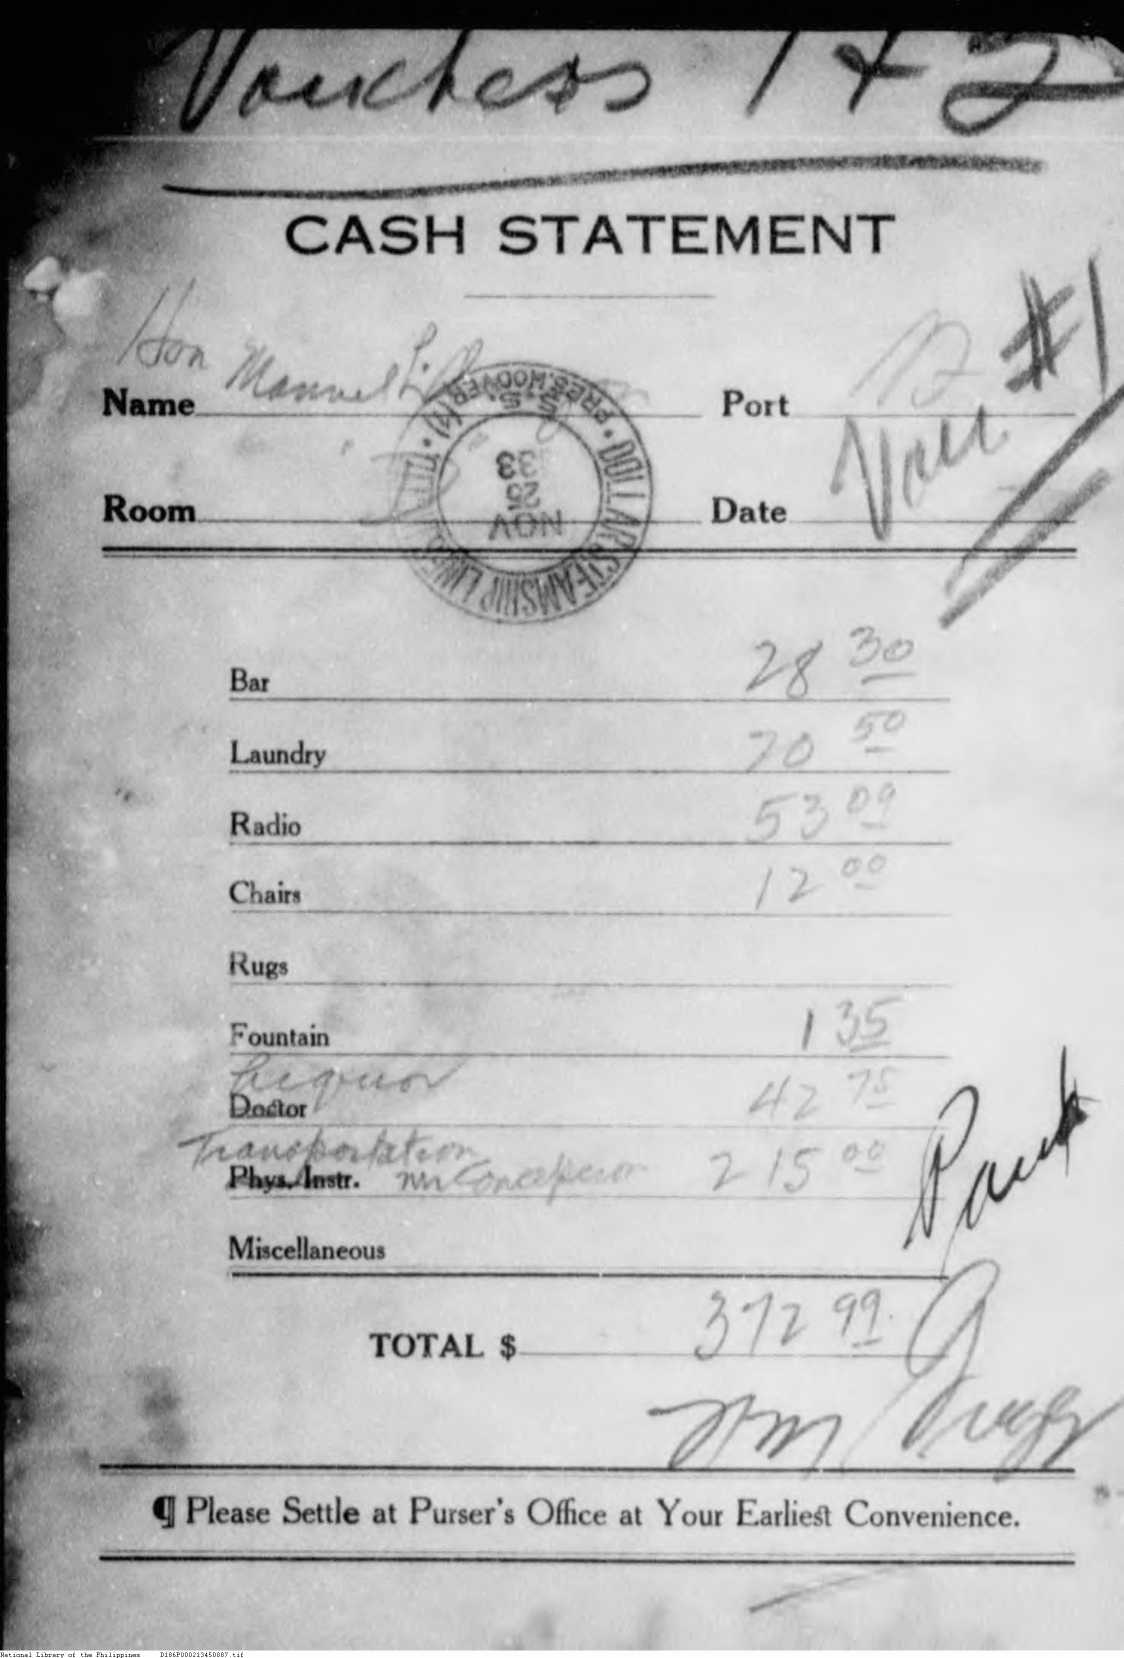 Vouchers 1 + 2
CASH STATEMENT
#1
Hon Manuel L.
Name Port
Vou
Room Date
DOLLAR STEAMSHIP LINES
PRES. HOOVER (1)
S.S.
NOV
25
33
Bar 28 30
Laundry 70 50
Radio 53 09
Chairs 12 00
Rugs
Fountain 1 35
Liquor
Doctor 42 75
Transportation
Phys. Instr. Mr Concepcion 215 00
Miscellaneous
TOTAL $ 372 99
¶ Please Settle at Purser's Office at Your Earliest Convenience.
National Library of the Philippines D186P000213450887.tif